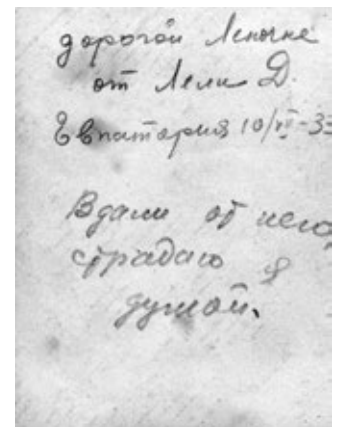 дорогой Леночке
от Лели Д.
Евпатория 10/VII-33
Вдали от него,
страдаю я
душой.